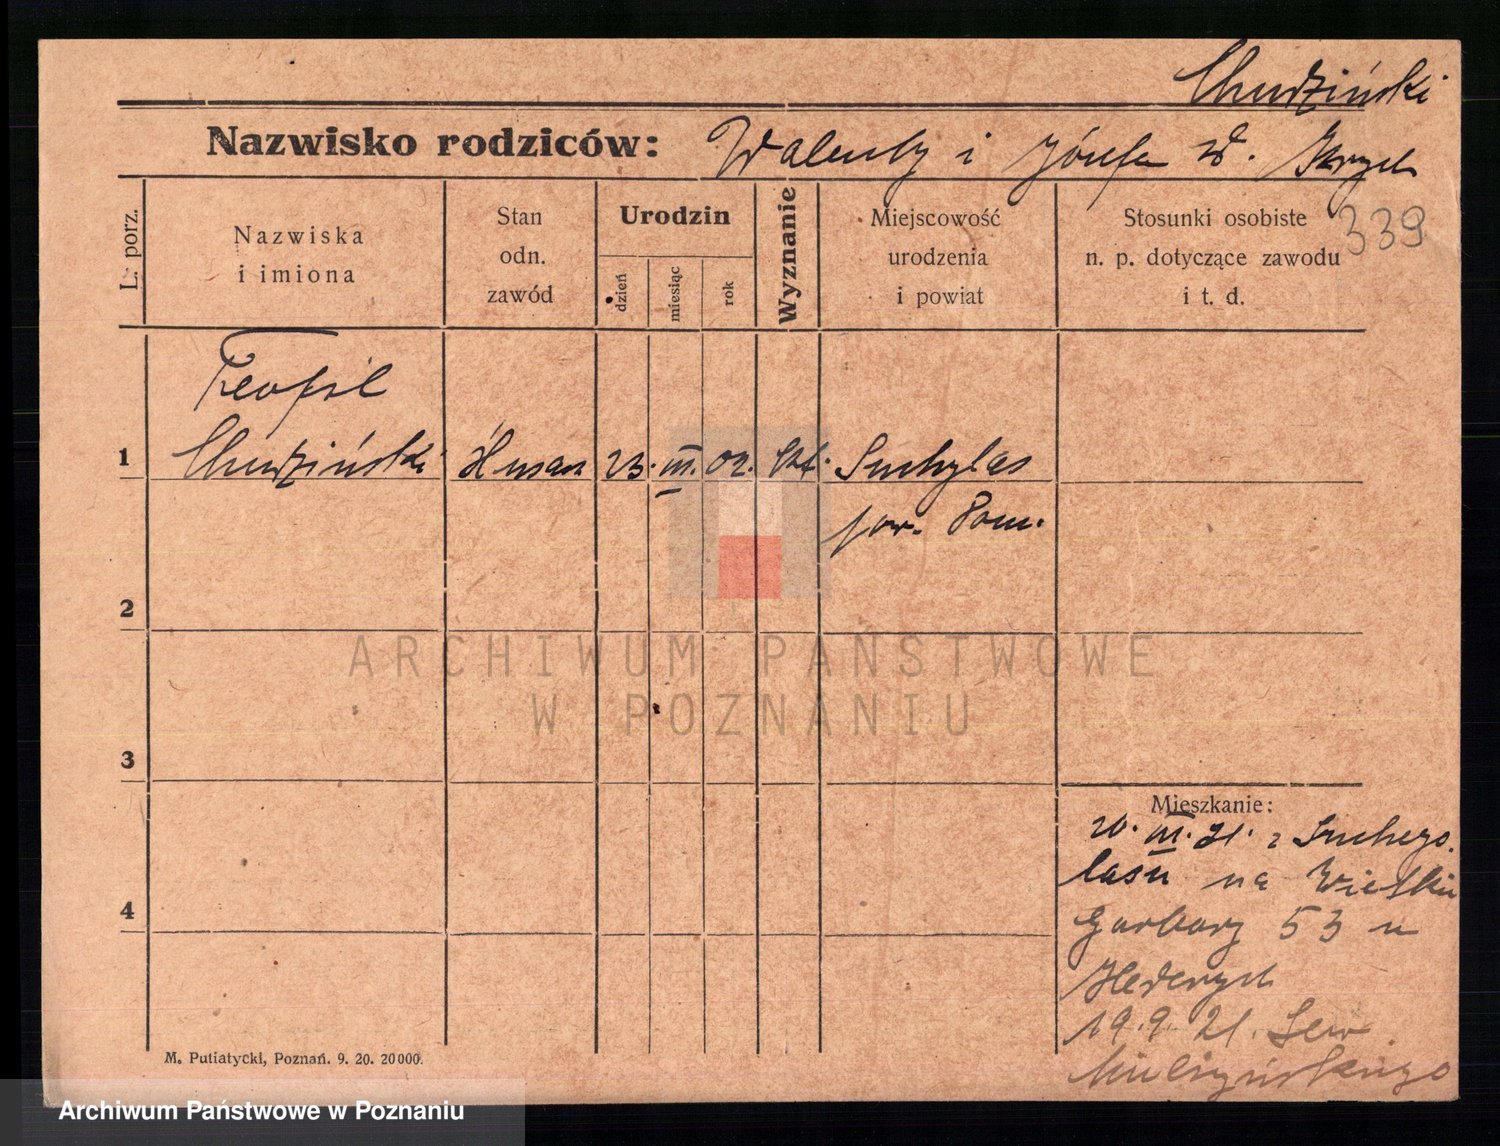 Chudziński
Nazwisko rodziców: Walenty i Józefa z d.
339
L. porz.
Nazwiska
i imiona
Stan
odn.
zawód
Urodzin
dzień
miesiąc
rok
Wyznanie
Miejscowość
urodzenia
i powiat
Stosunki osobiste
n. p. dotyczące zawodu
i t. d.
Teofil
1 Chudziński 23. III. 02. kat. Suchylas
pow. Pozn.
2
3
4
Mieszkanie:
20. III. 21. z Suchego
lasu na Wielkie
Garbary 53 u
19. 9. 21. Sew.
M. Putiatycki, Poznań. 9. 20. 20000.
ARCHIWUM PAŃSTWOWE
W POZNANIU
Archiwum Państwowe w Poznaniu